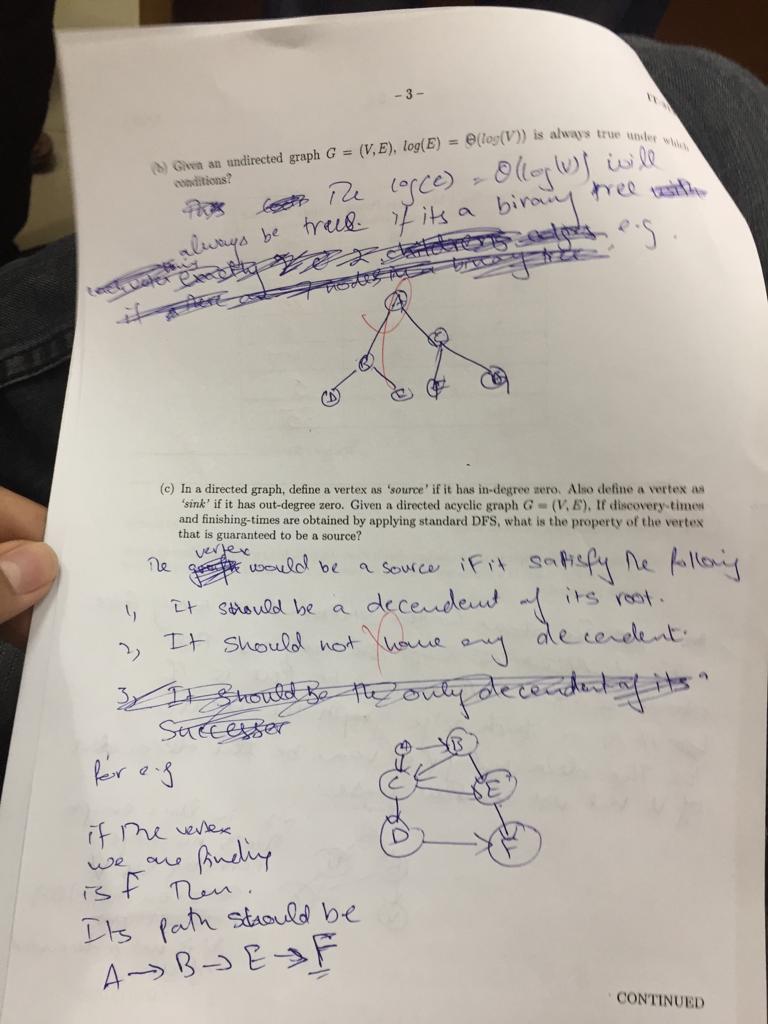 - 3 -
(b) Given an undirected graph G = (V, E), log(E) = Θ(log(V)) is always true under which
conditions?
The log(E) = Θ(log(V)) will
always be true. if its a binary tree
e.g.
A
B C
D E
(c) In a directed graph, define a vertex as 'source' if it has in-degree zero. Also define a vertex as
'sink' if it has out-degree zero. Given a directed acyclic graph G = (V, E), If discovery-times
and finishing-times are obtained by applying standard DFS, what is the property of the vertex
that is guaranteed to be a source?
vertex
The would be a source if it satisfy the following
1, It should be a decendent of its root.
2, It should not have any decendent.
3, It should be the only decendent of its
Successer
for e.g
A B
C E
D F
if the vertex
we are finding
is F Then.
Its path should be
A → B → E → F
CONTINUED